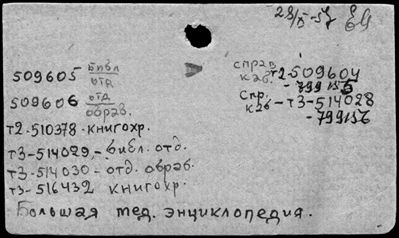 28/X-57
509605 библ отд
509606 отд обраб.
т2-510378 книгохр.
т3-514029-библ. отд.
т3-514030-отд. обраб.
т3-516432 книгохр.
справ каб т2-509604
- 799155
Спр. каб - т3-514028
- 799156
Большая мед. энциклопедия.